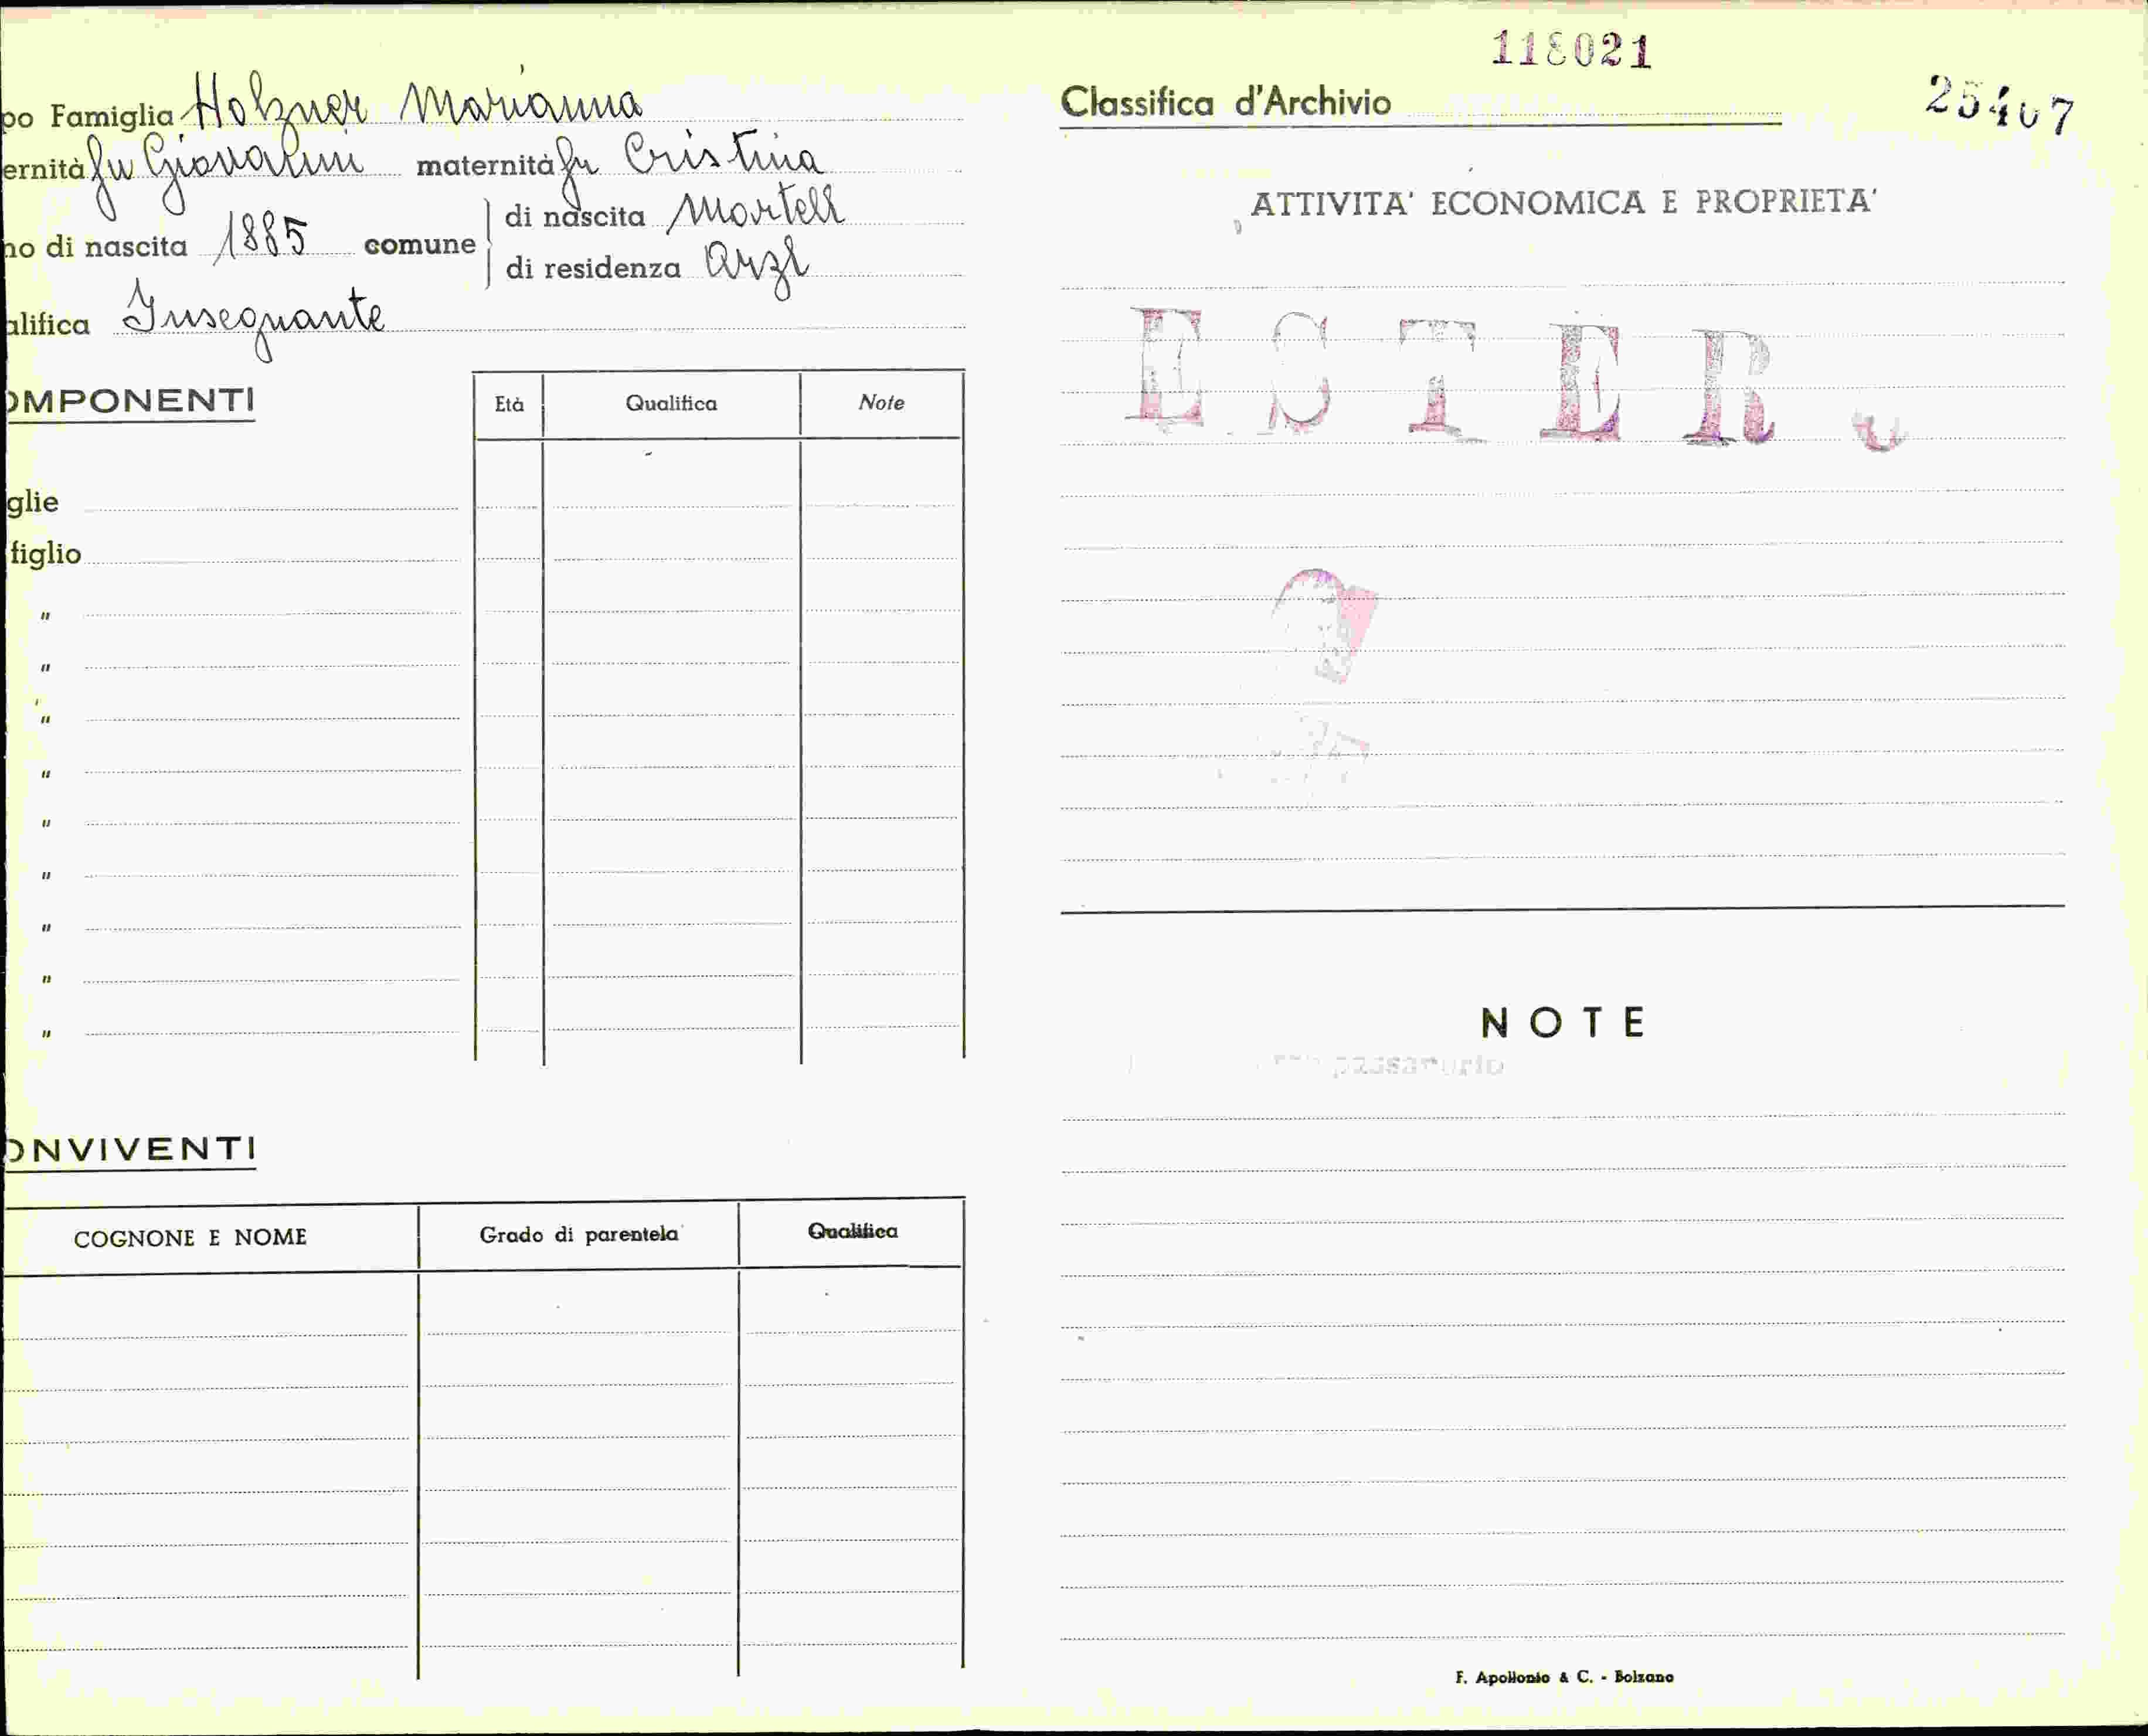 118021
25407
po Famiglia Holzner Marianna
ernità fu Giovanni maternità fu Cristina
no di nascita 1885 comune di nascita Martell
di residenza Arzl
alifica Insegnante
OMPONENTI
Età Qualifica Note
glie
figlio
"
"
"
"
"
"
"
"
"
ONVIVENTI
COGNONE E NOME Grado di parentela Qualifica
Classifica d'Archivio
ATTIVITA' ECONOMICA E PROPRIETA'
ESTER
NOTE
F. Apollonio & C. - Bolzano